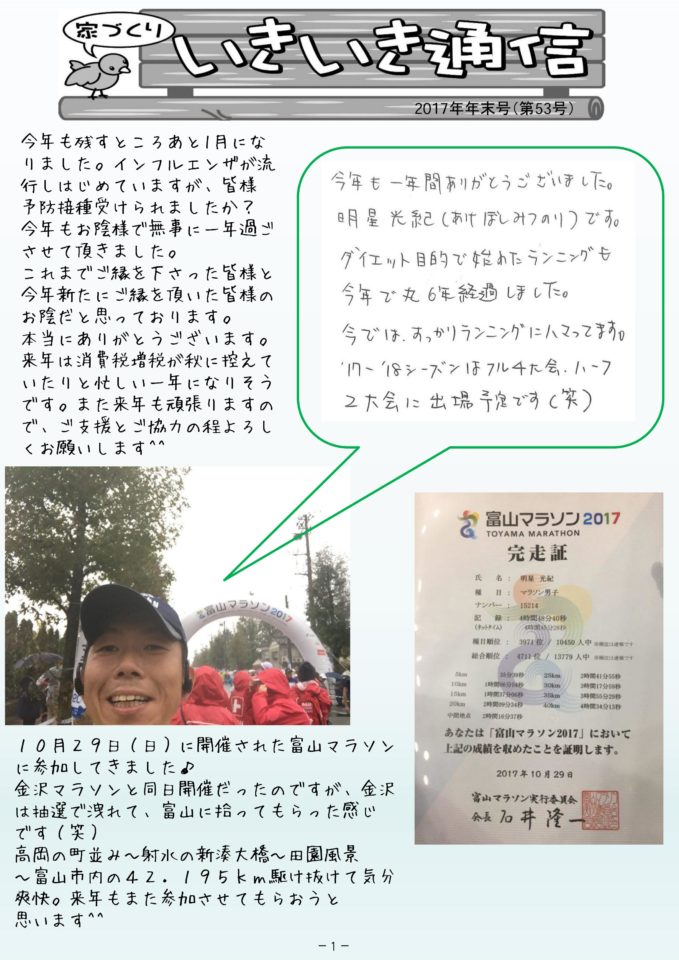 家づくり
いきいき通信
2017年年末号(第53号)
今年も残すところあと1月にな
りました。インフルエンザが流
行しはじめていますが、皆様
予防接種受けられましたか？
今年もお陰様で無事に一年過ご
させて頂きました。
これまでご縁を下さった皆様と
今年新たにご縁を頂いた皆様の
お陰だと思っております。
本当にありがとうございます。
来年は消費税増税が秋に控えて
いたりと忙しい一年になりそう
です。また来年も頑張りますの
で、ご支援とご協力の程よろし
くお願いします^^
今年も一年間ありがとうございました。
明星光紀(あけぼしみつのり)です。
ダイエット目的で始めたランニングも
今年で丸6年経過しました。
今では、すっかりランニングにハマってます。
'17～'18シーズンはフル4大会、ハーフ
2大会に出場予定です(笑)
富山マラソン2017
富山マラソン2017
TOYAMA MARATHON
完走証
氏名：明星 光紀
種目：マラソン男子
ナンバー：15214
記録：4時間48分40秒
(ネットタイム) 4時間45分28秒
種目順位：3971位／10450人中
総合順位：4711位／13779人中
5km 35分39秒 25km 2時間41分55秒
10km 1時間06分54秒 30km 3時間17分59秒
15km 1時間37分06秒 35km 3時間55分29秒
20km 2時間09分34秒 40km 4時間34分13秒
中間地点 2時間16分37秒
あなたは「富山マラソン2017」において
上記の成績を収めたことを証明します。
2017年10月29日
富山マラソン実行委員会
会長 石井隆一
１０月２９日（日）に開催された富山マラソン
に参加してきました♪
金沢マラソンと同日開催だったのですが、金沢
は抽選で洩れて、富山に拾ってもらった感じ
です（笑）
高岡の町並み～射水の新湊大橋～田園風景
～富山市内の４２．１９５ｋｍ駆け抜けて気分
爽快。来年もまた参加させてもらおうと
思います^^
－1－